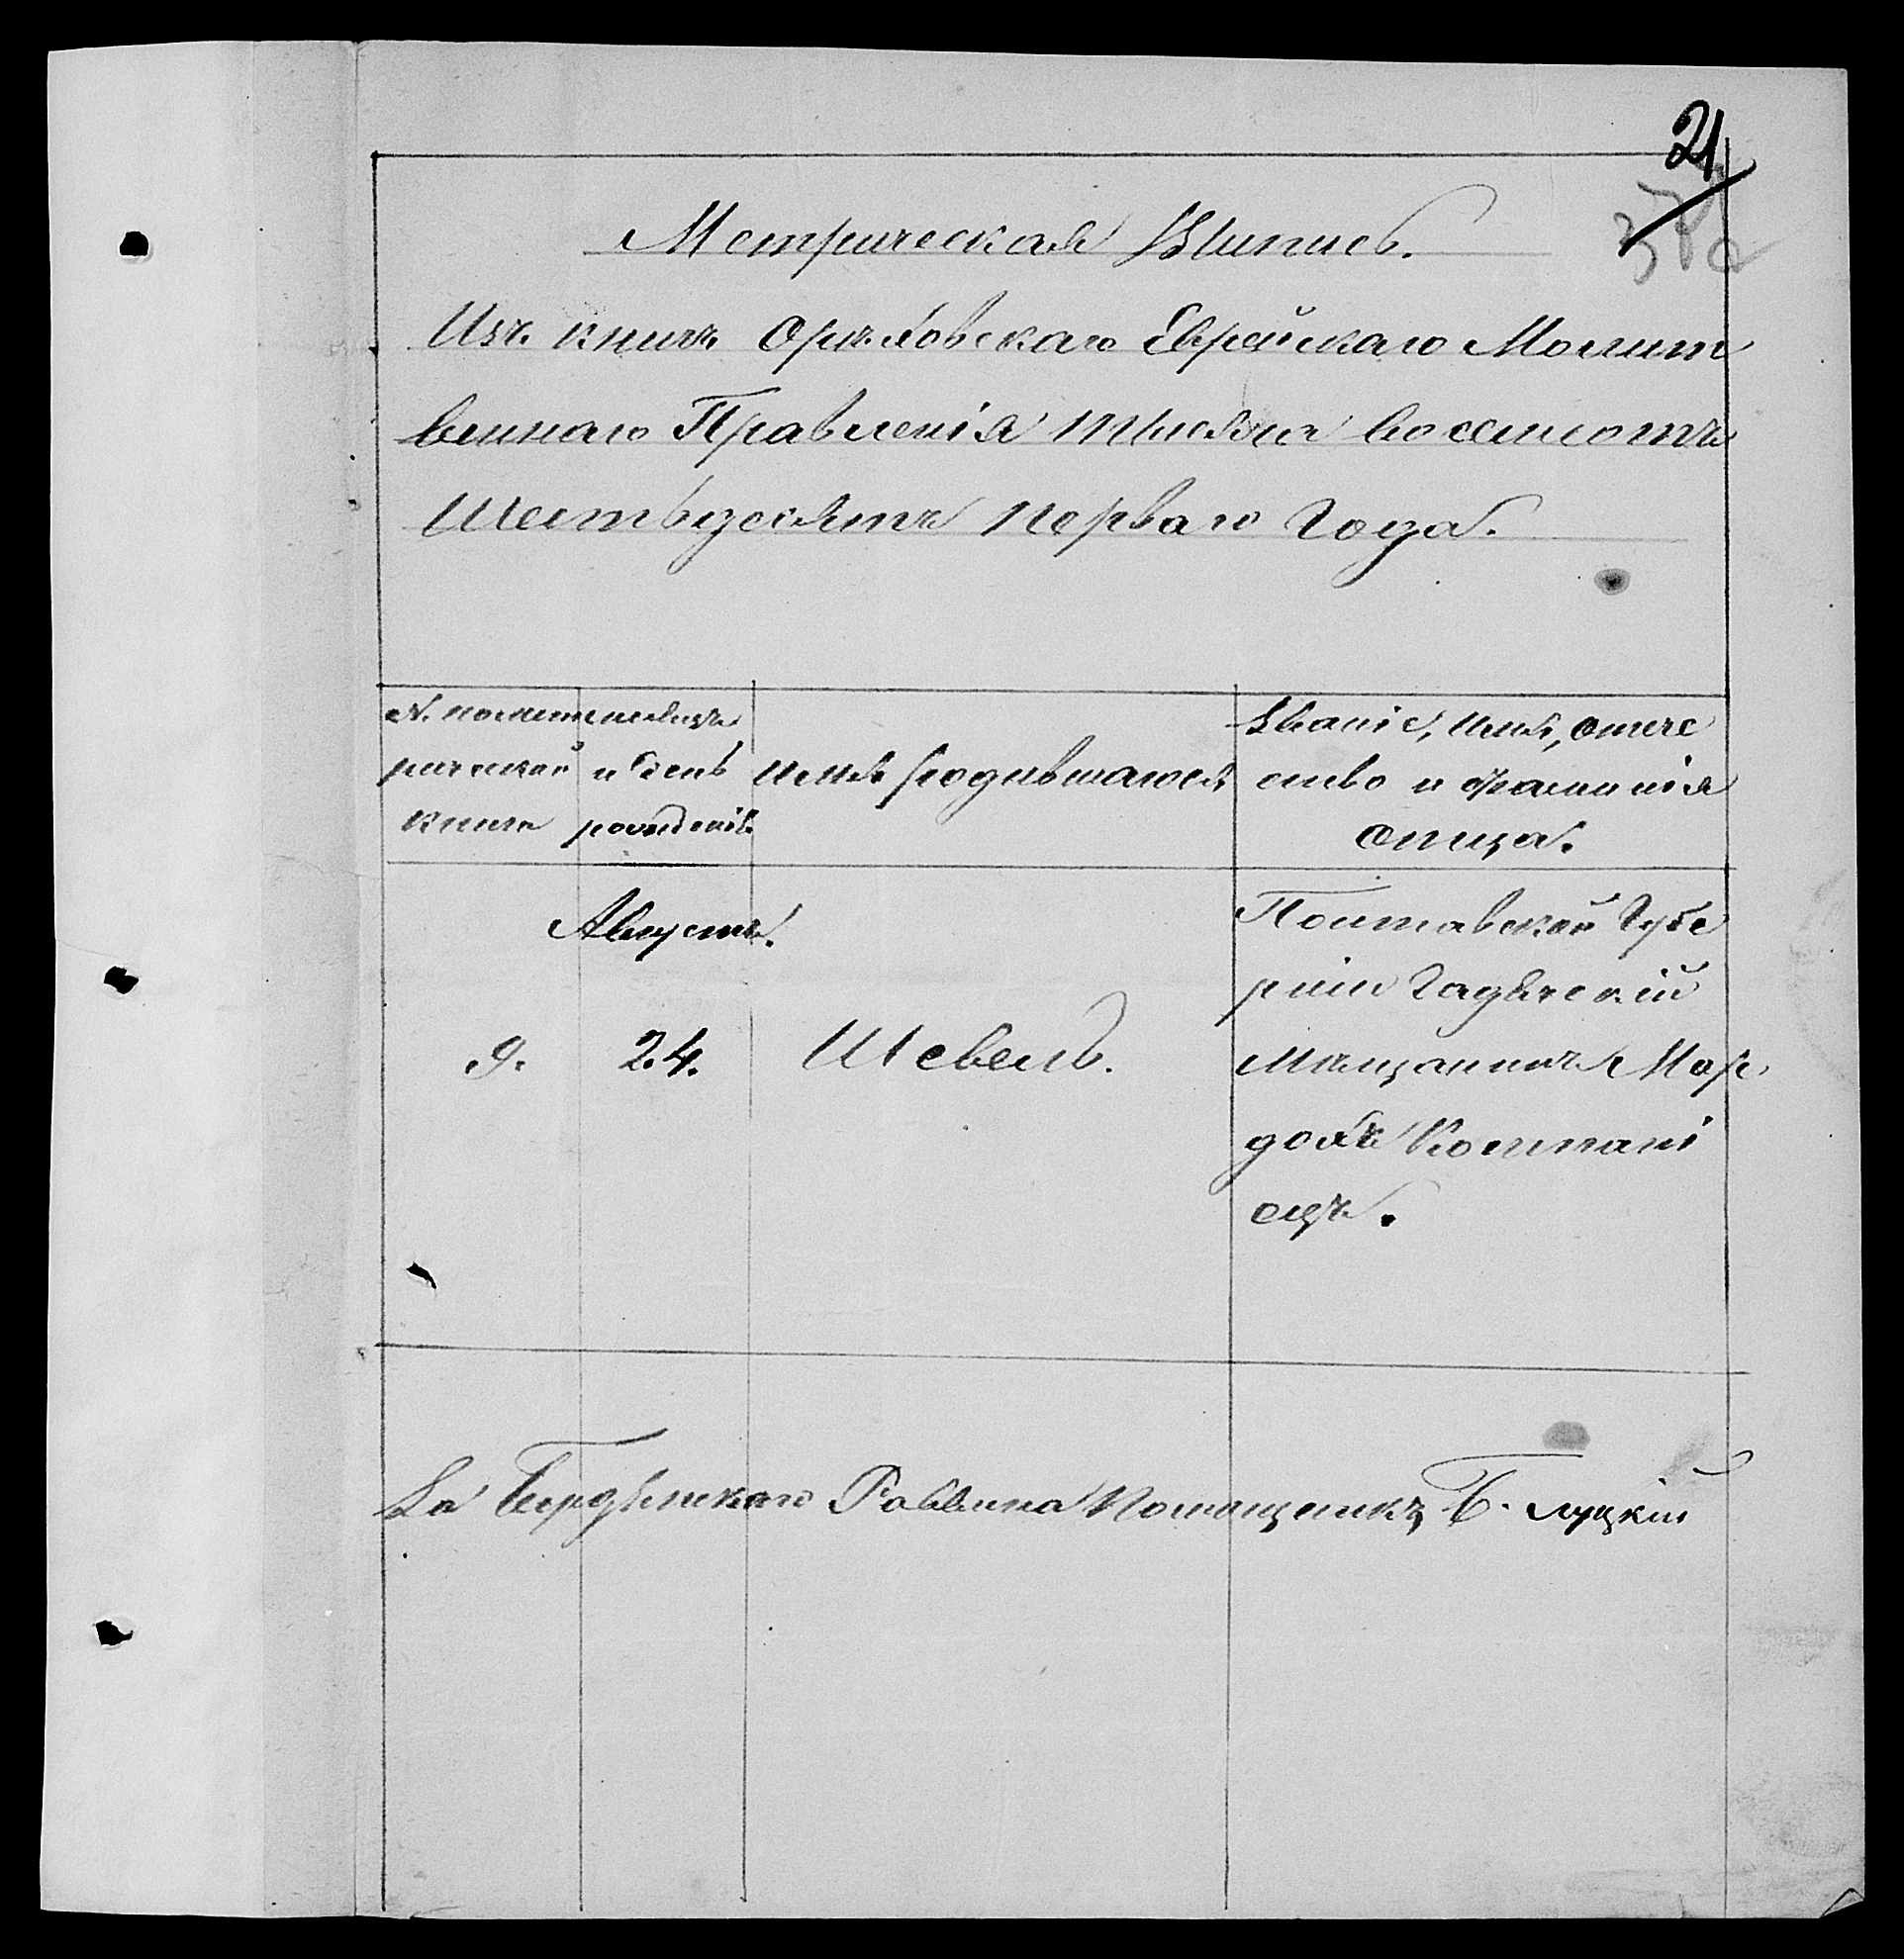 21
Метрическая Выпись.
Изъ книгъ Орѣховскаго Еврейскаго Молит
веннаго Правленія тысяча восемсотъ
Шестьдесятъ перваго Года.
N. по мет
рической
книге
месяцъ
и день
рожденія
имя родившагося
Званіе, имя, отече
ство и фамилія
отца.
Августъ.
9.
24.
Шевель.
Полтавской Губе
рніи Гадячскій
Мѣщанинъ Мор
дохъ Компані
ецъ.
За Бердянскаго Раввина Помощникъ Б. Луцкій